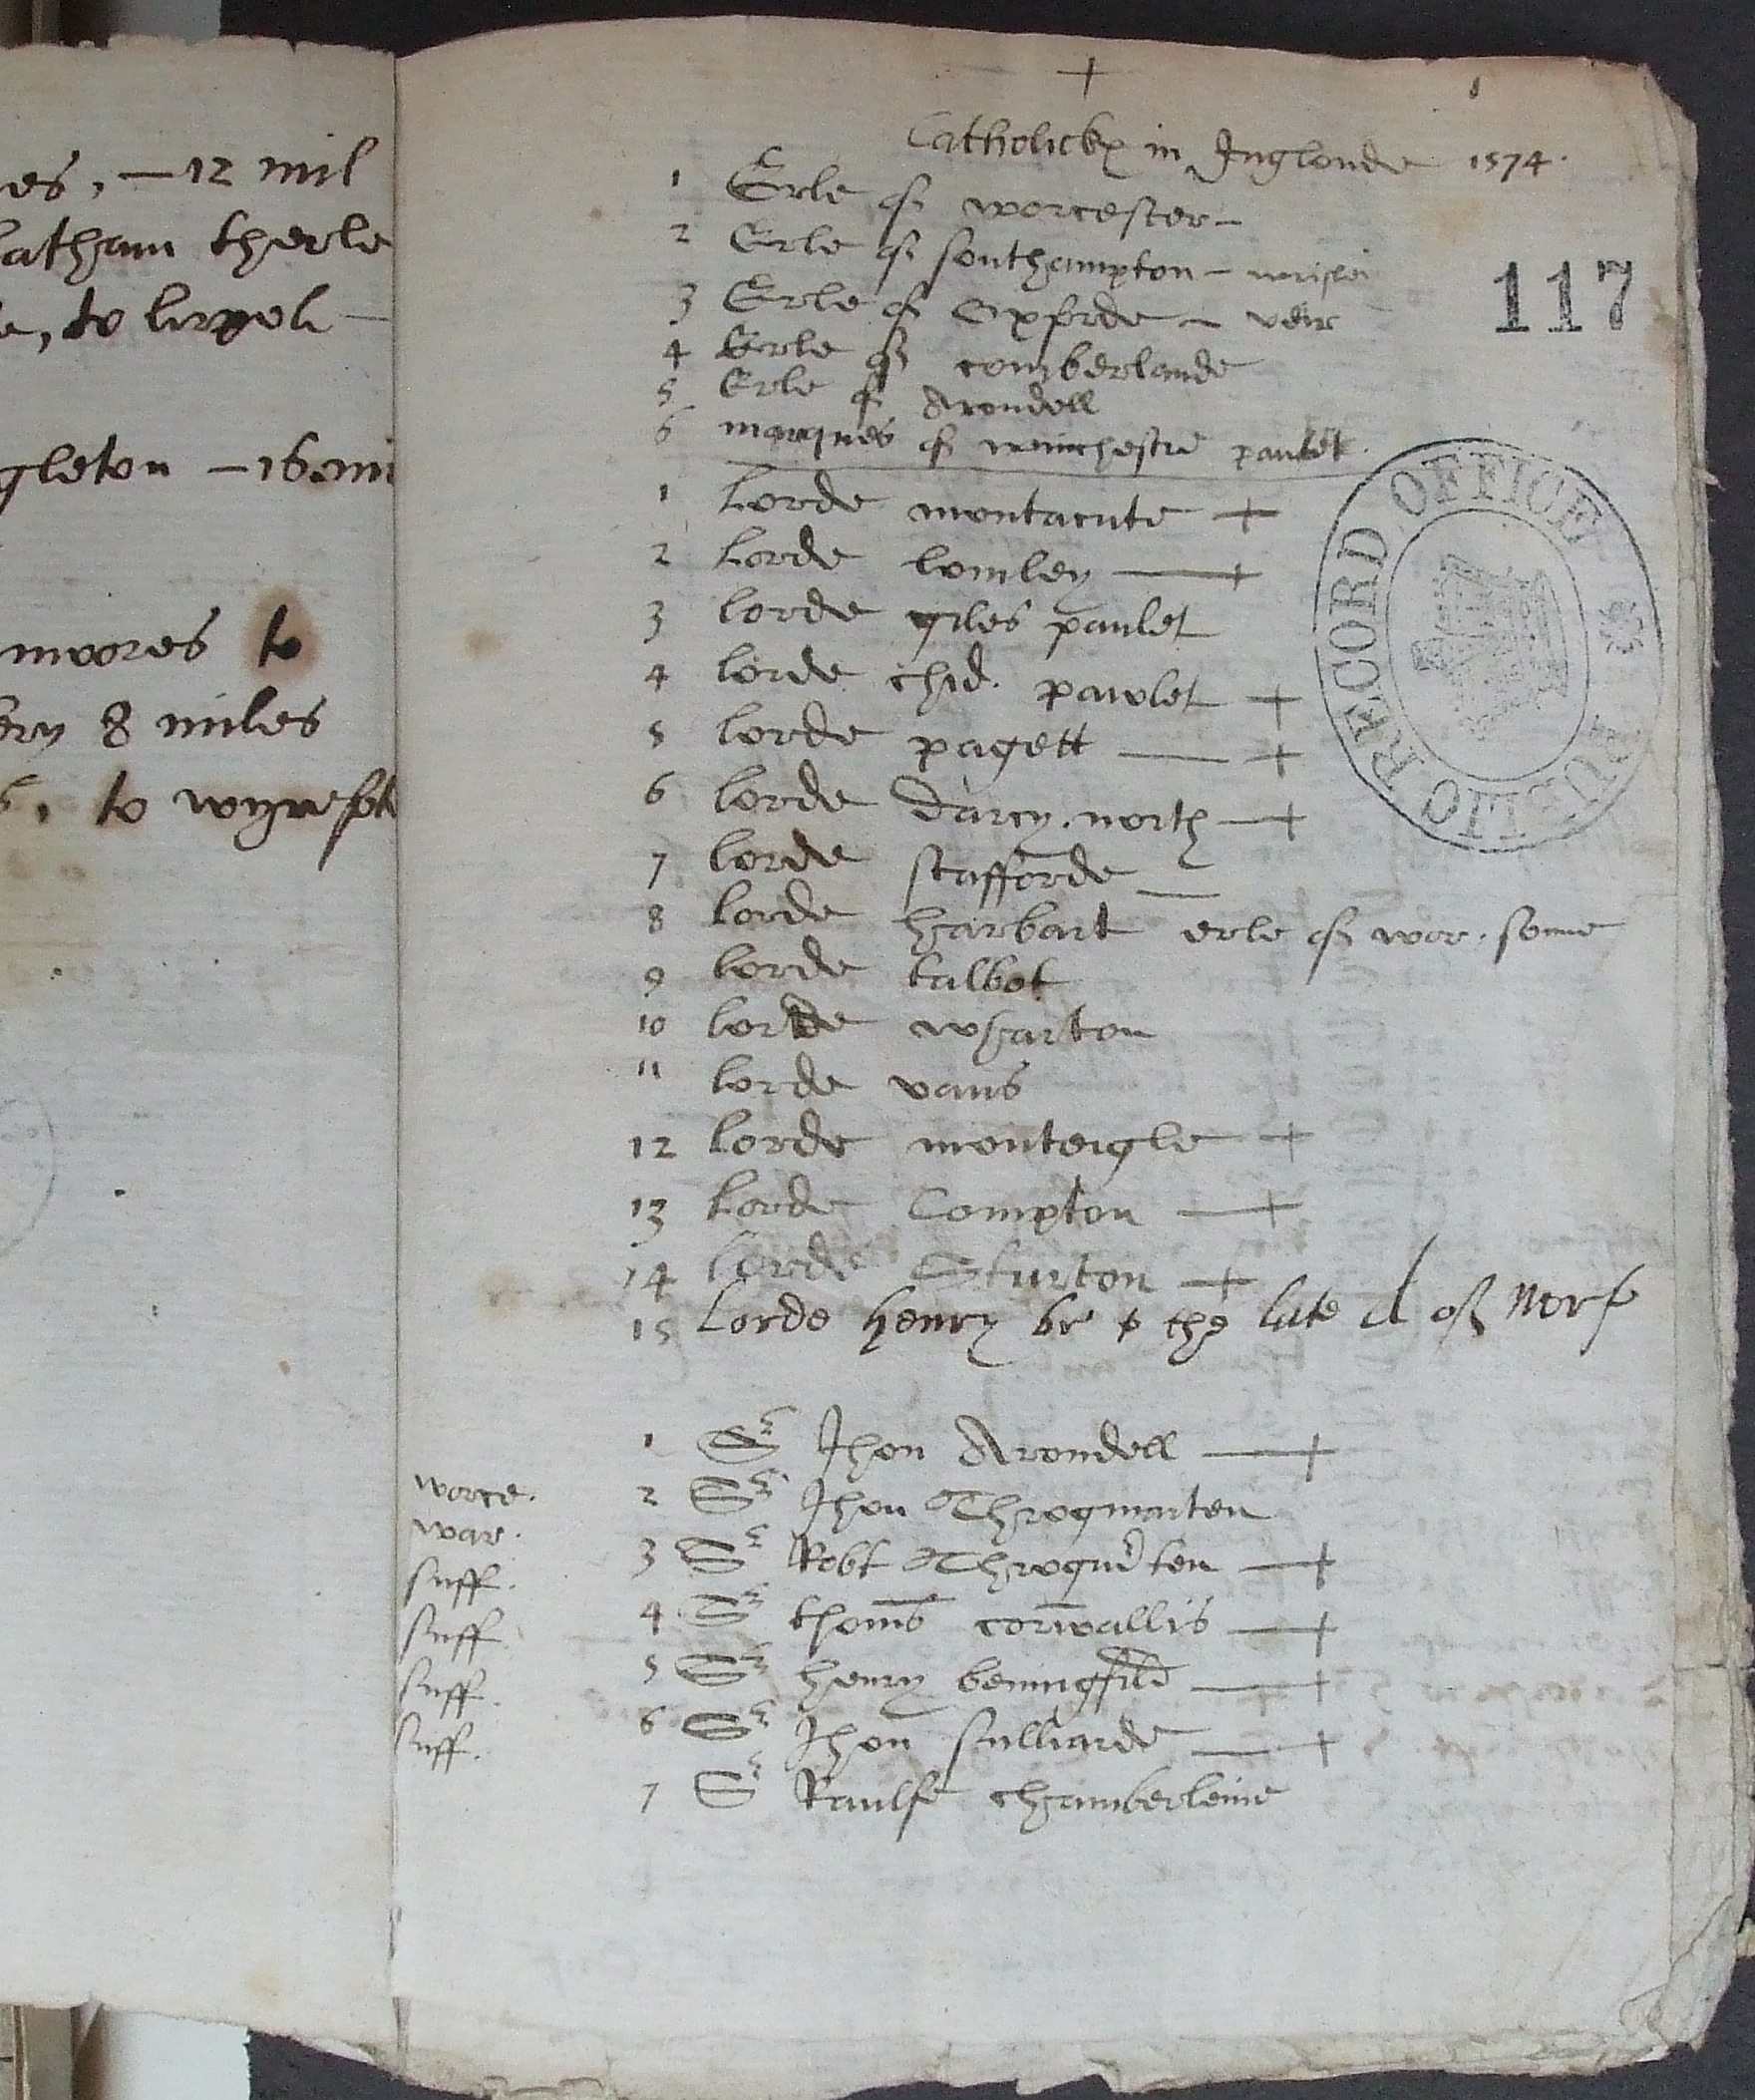 es, – 12 mil
latham therle
e, to lirpoli –
gleton – 16 mi
moores to
bry 8 miles
s, to wyresfote
+
Catholickes in Inglonde 1574.
117
1 Erle of worcester –
2 Erle of southampton – wrislei
3 Erle of Oxforde – veir
4 Erle of comberlande
5 Erle of Arondell
6 marques of winchestre paulet.
1 Lorde montacute +
2 Lorde lomley — +
3 lorde giles paulet
4 lorde chid. pawlet +
5 lorde pagett — +
6 lorde Darcy. north — +
7 lorde stafforde —
8 lorde harbart erle of wor. sonne
9 lorde talbot
10 lorde wharton
11 lorde vaus
12 lorde monteigle +
13 Lorde Compton — +
14 Lorde Sturton +
15 Lorde henry br to the late d of Norf
1 Sr Jhon Arondell — +
worce. 2 Sr Jhon Throgmarten
war. 3 Sr Robt Throgmrten — +
suff. 4 Sr thoms cornwallis — +
suff. 5 Sr henry beningfild — +
suff. 6 Sr Jhon sulliarde — +
suff. 7 Sr Raulfe chamberleine
PUBLIC RECORD OFFICE